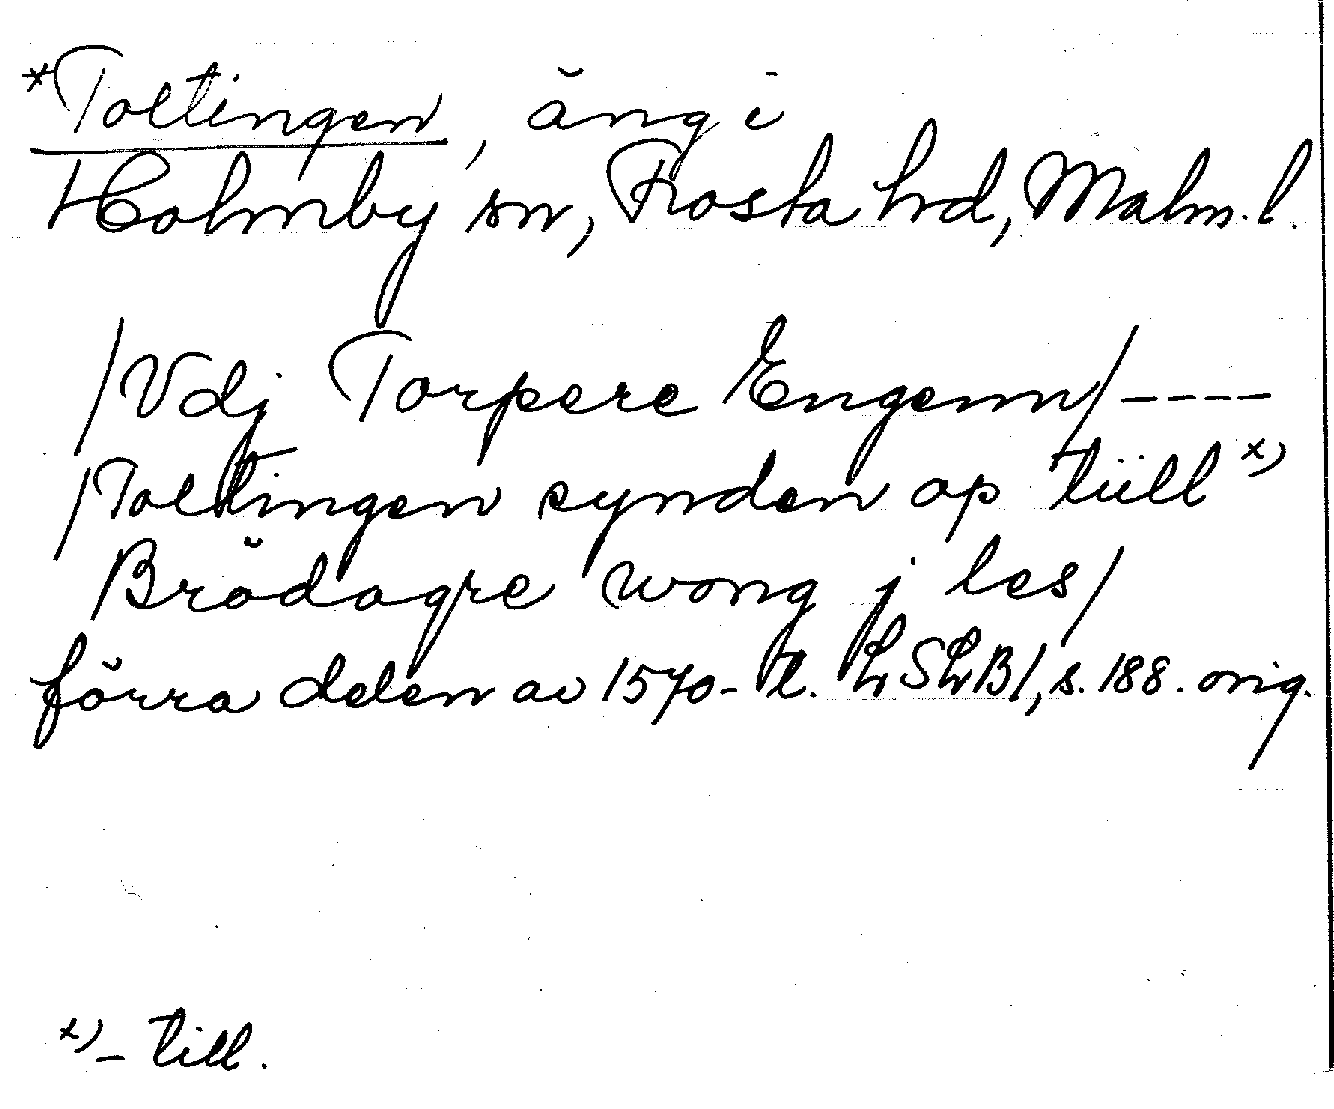 *Toltingen, äng i
Holmby sn, Frosta hd, Malm. l.
/Vdj Torpere Engenn/ ----
/Toltingen synden op tiill x)
Brödagre wong j les/
förra delen av 1570-t. LSLB1, s. 188. orig.
x) - till.